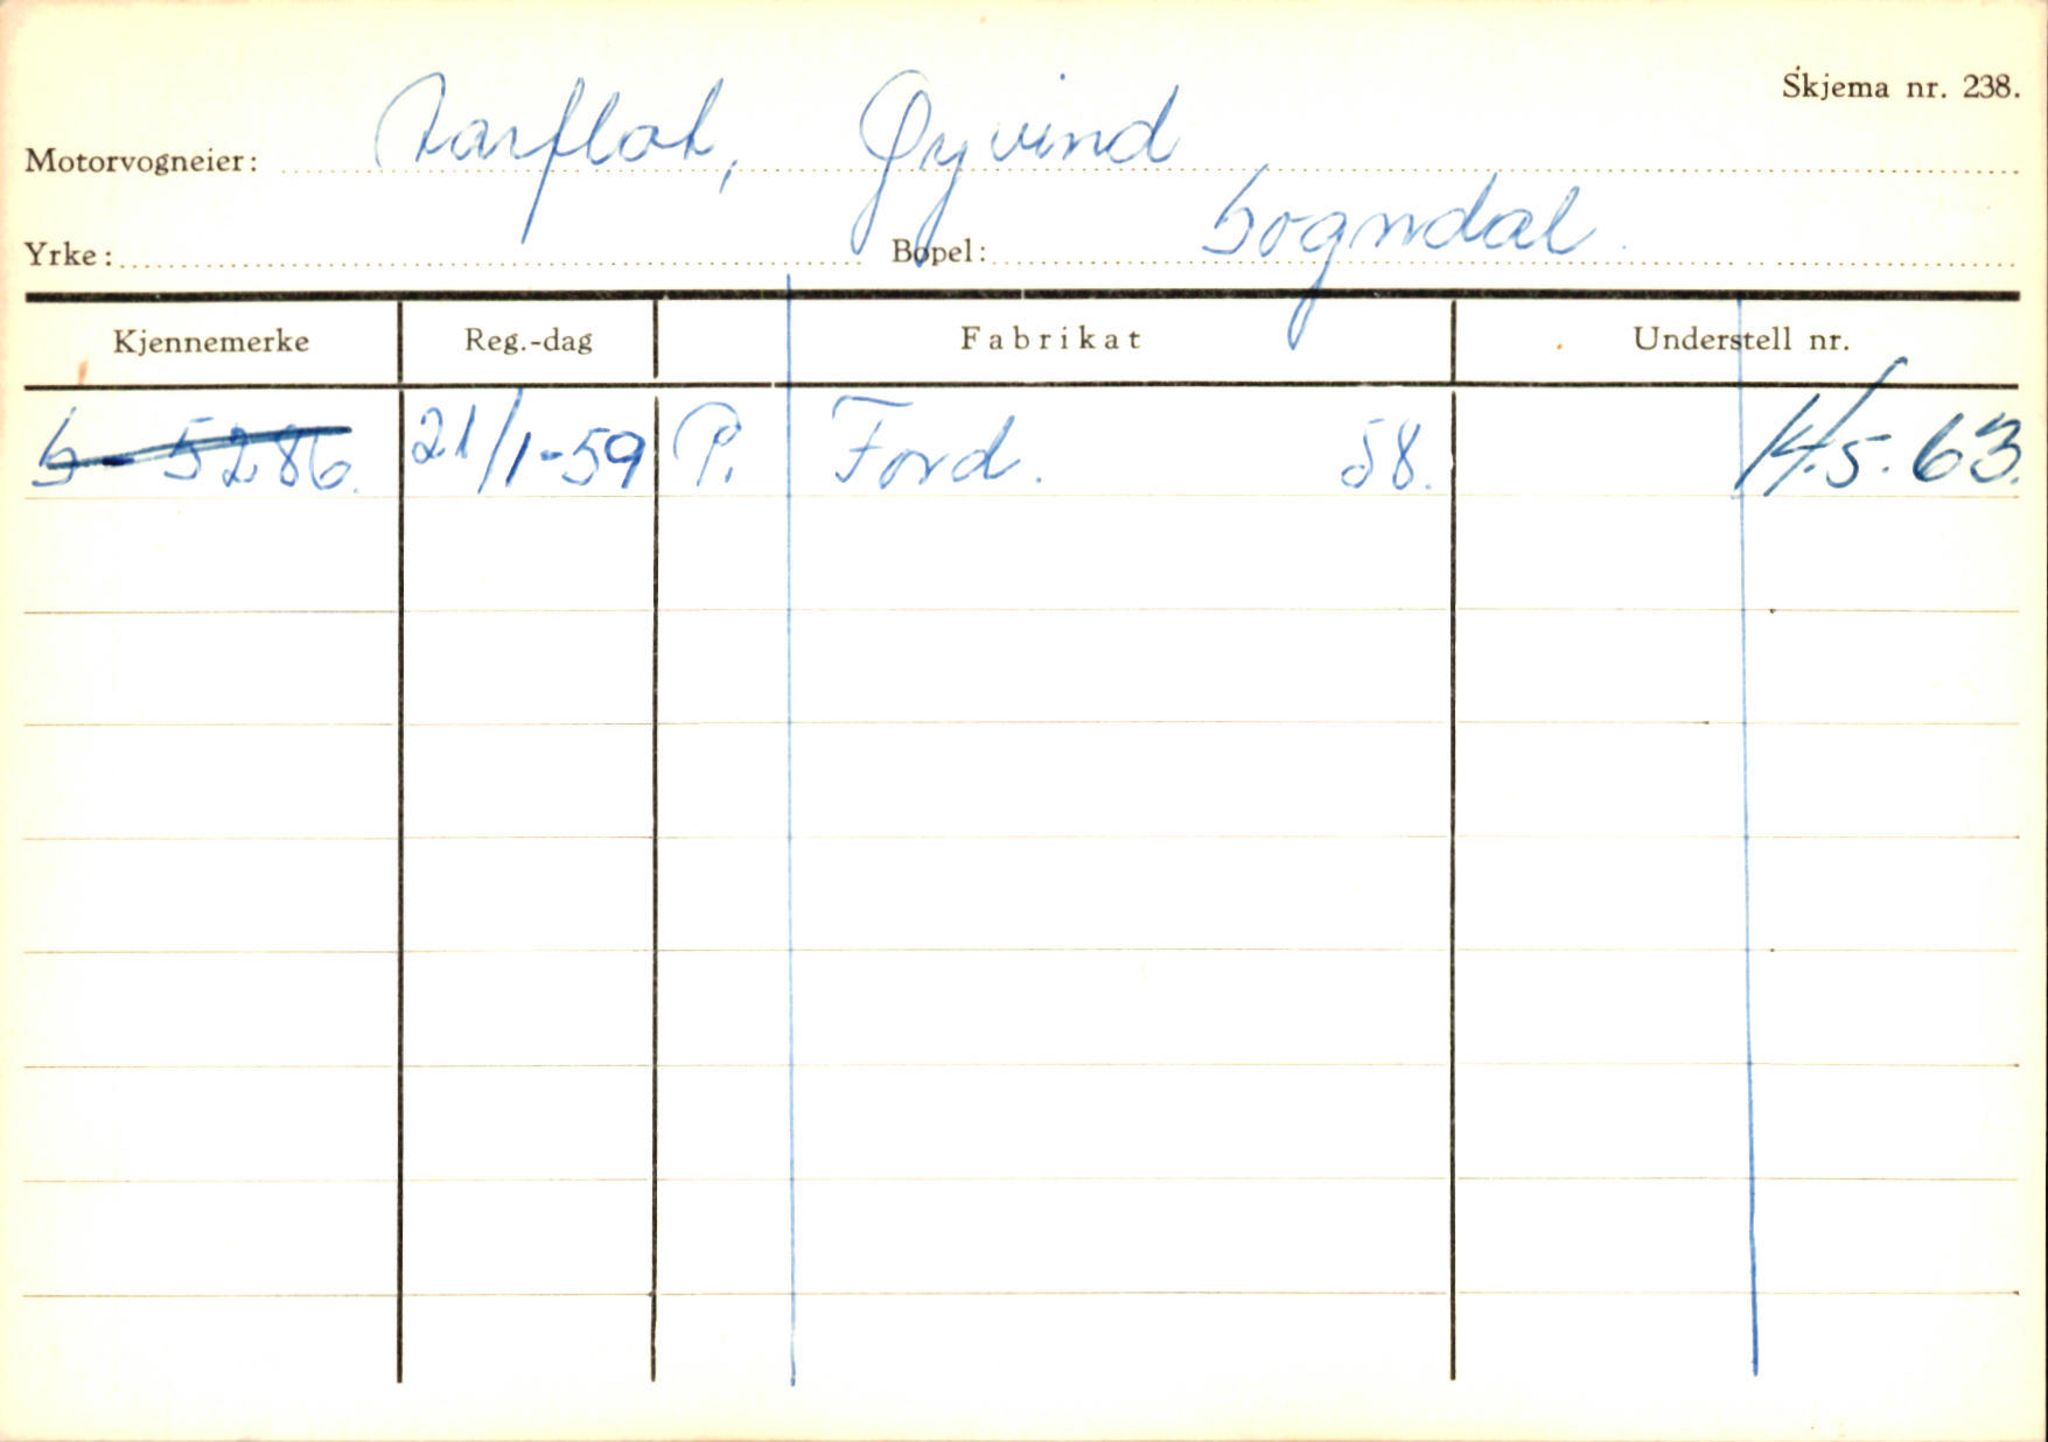 Skjema nr. 238.
Motorvogneier: Tarflot, Øyvind
Yrke: Bopel: Sogndal
Kjennemerke Reg.-dag Fabrikat Understell nr.
S - 5286. 21/1-59 P. Ford. 58. 14.5.63.